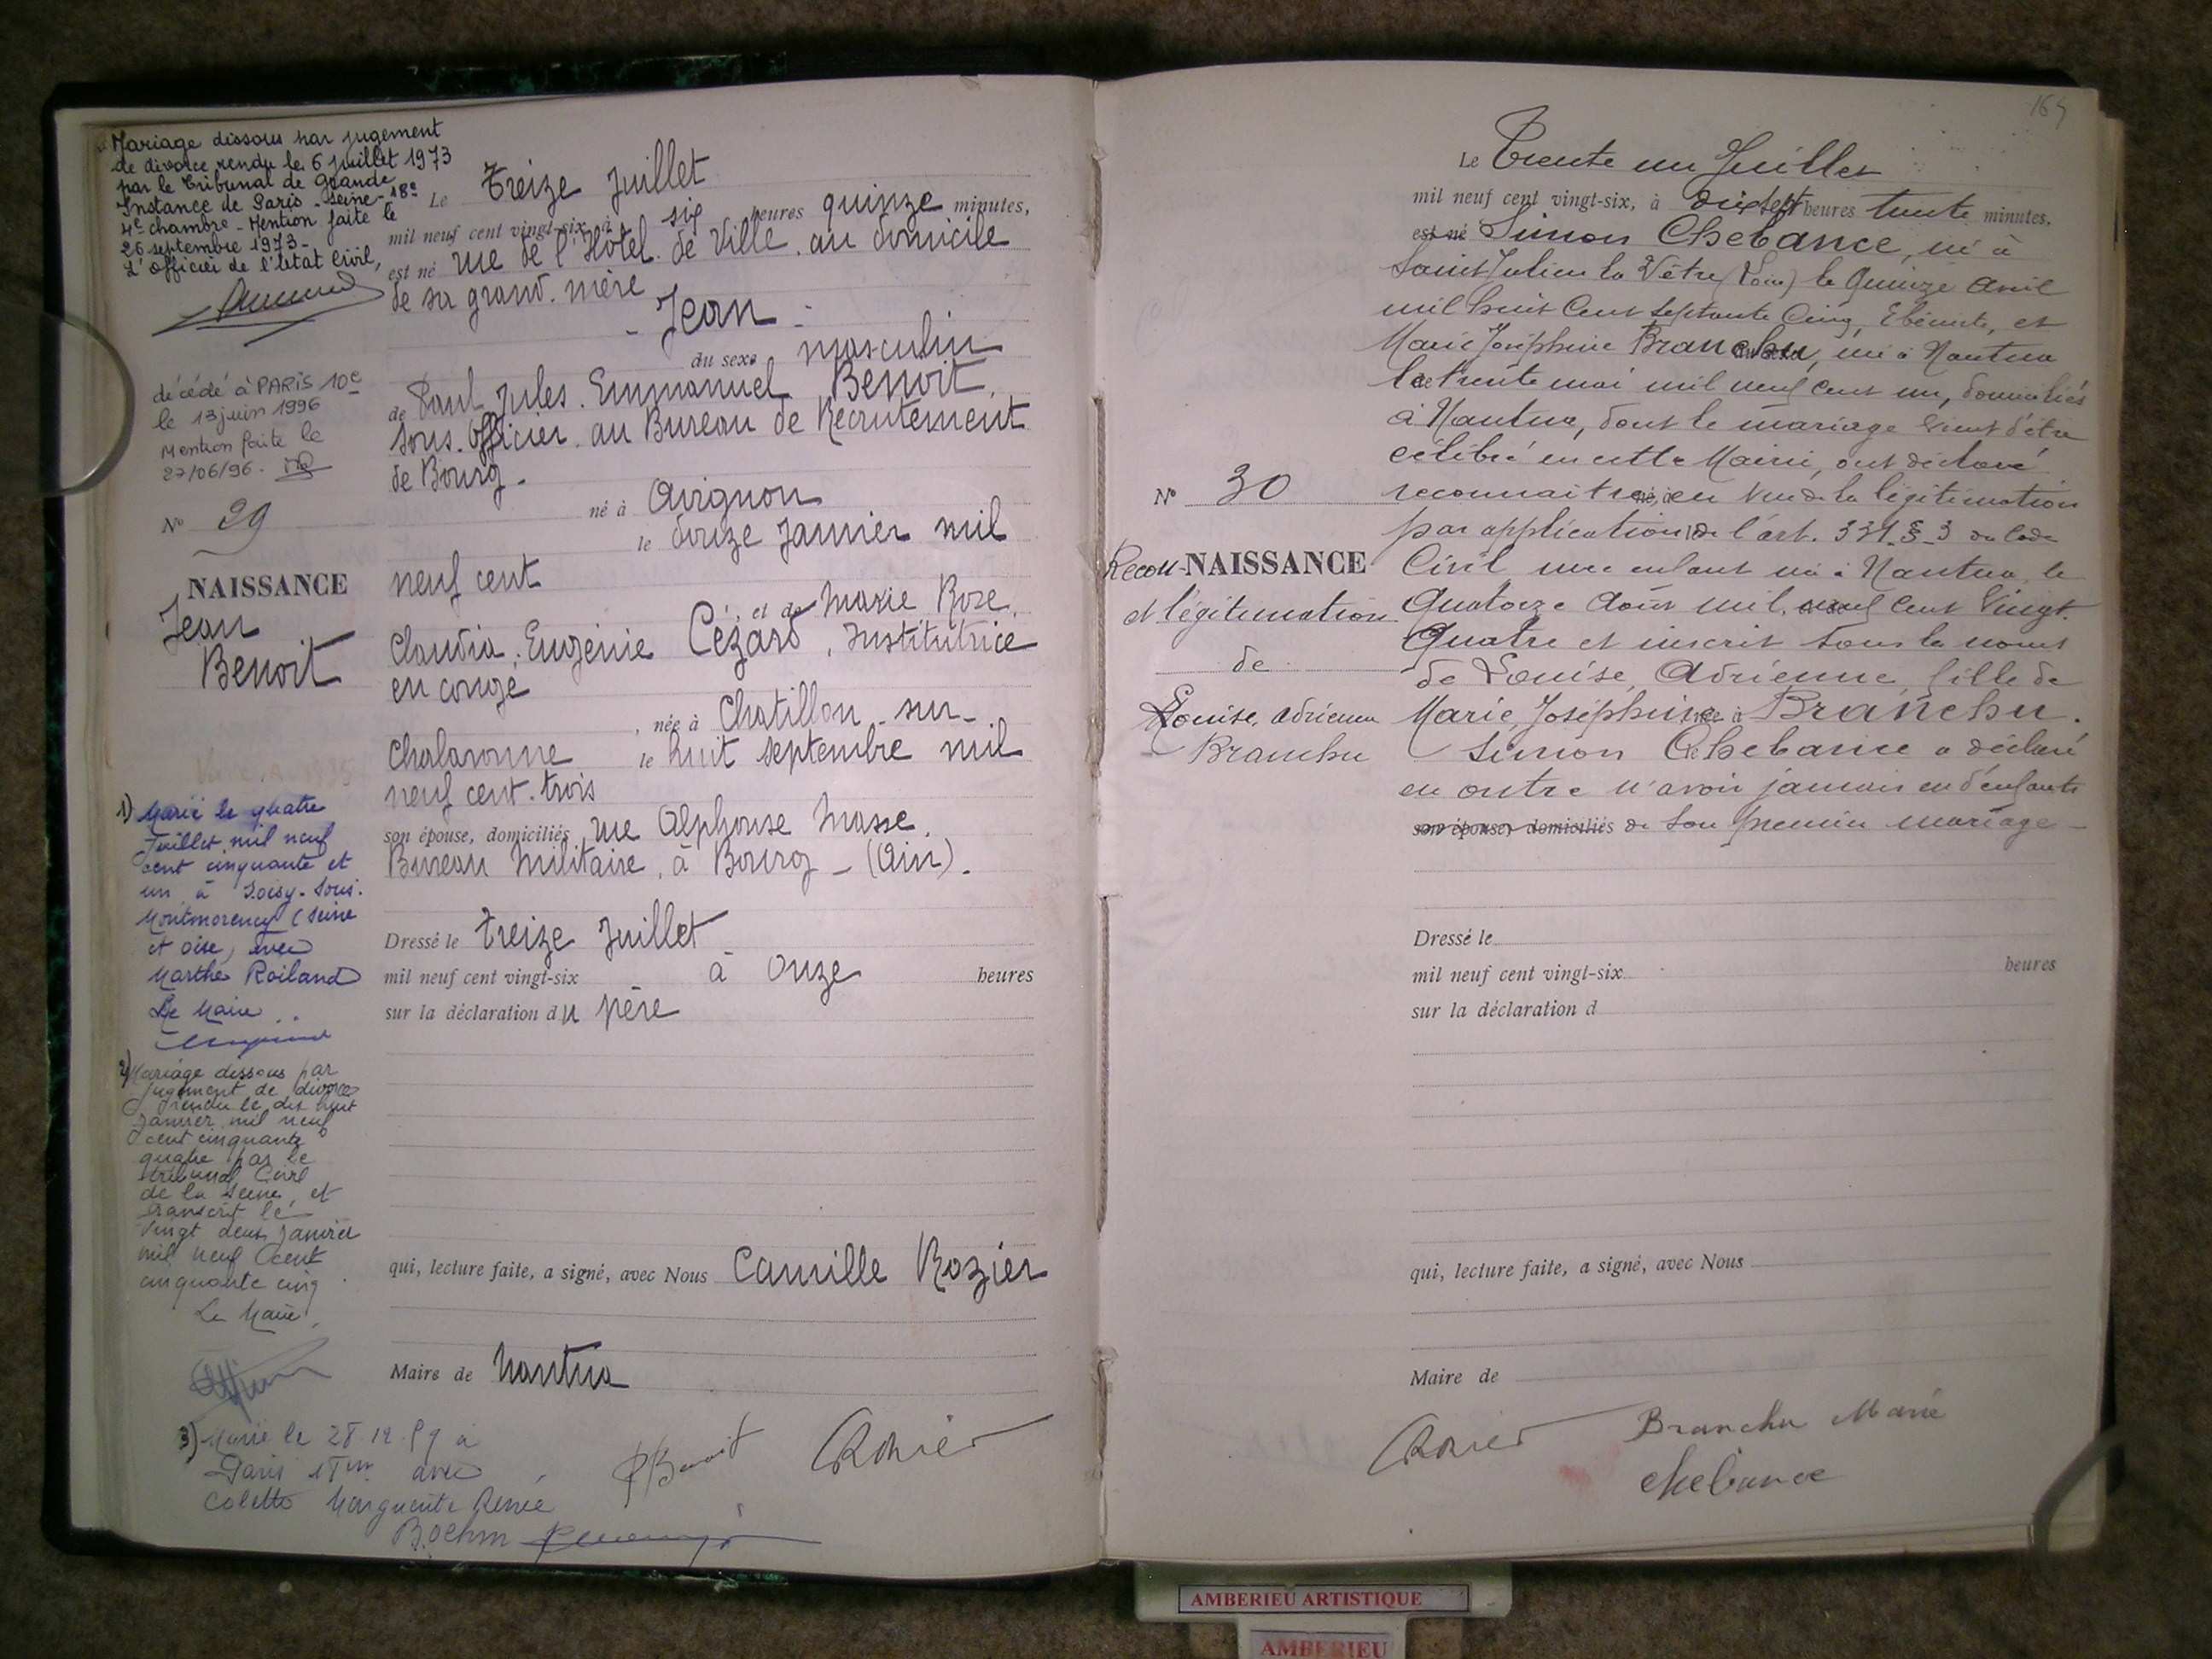 Mariage dissous par jugement
de divorce rendu le 6 juillet 1973
par le Tribunal de Grande
Instance de Paris - Seine - 18e
4e chambre - Mention faite le
26 septembre 1973 -
L'officier de l'état civil,
décédé à PARIS 10e
le 13 juin 1996
Mention faite le
27/06/96.
N° 29
NAISSANCE
Jean
Benoit
1) Marié le quatre
Juillet mil neuf
cent cinquante et
un à Soisy-sous-
Montmorency (Seine
et Oise) avec
Marthe Roiland
Le Maire
2) Mariage dissous par
jugement de divorce
rendu le dix huit
Janvier mil neuf
cent cinquante
quatre par le
tribunal Civil
de la Seine, et
transcrit le
vingt deux Janvier
mil neuf cent
cinquante cinq
Le Maire,
3) Marié le 28 12 59 à
Paris avec
Colette Marguerite Renée
Boehm
Le treize Juillet
mil neuf cent vingt-six à six heures quinze minutes,
est né rue de l'Hôtel de Ville, au domicile
de sa grand-mère
- Jean -
du sexe masculin
de Paul Jules Emmanuel Benoit,
sous-officier au Bureau de Recrutement
de Bourg -
né à Avignon
le douze Janvier mil
neuf cent
, et de Marie Rose,
Claudia, Eugénie Cézard, Institutrice
en congé
, née à Chatillon-sur-
Chalaronne le huit septembre mil
neuf cent trois
son épouse, domiciliés rue Alphonse Masse,
Bureau Militaire, à Bourg - (Ain).
Dressé le treize Juillet
mil neuf cent vingt-six à onze heures
sur la déclaration du père
qui, lecture faite, a signé, avec Nous Camille Rozier
Maire de Nantua
PBenoit CRozier
Le Trente un Juillet
mil neuf cent vingt-six, à dix sept heures trente minutes,
est né Simon Chebance, né à
Saint Julien la Vêtre (Loire) le quinze avril
mil huit cent septante cinq, Ebéniste, et
Marie Joséphine Branchu, née à Nantua
le trente mai mil neuf cent un, domiciliés
à Nantua, dont le mariage vient d'être
célébré en cette Mairie, ont déclaré
reconnaitre, en vue de la légitimation
par application de l'art. 331 § 3 du Code
Civil une enfant née à Nantua, le
quatorze Août mil neuf cent vingt
quatre et inscrit sous les noms
de Louise, Adrienne, fille de
Marie, Joséphine Branchu.
Simon Chebance a déclaré
en outre n'avoir jamais eu d'enfants
son épouse, domiciliés de son premier mariage -
N° 30
Recon-NAISSANCE
et légitimation
de
Louise, Adrienne
Branchu
Dressé le
mil neuf cent vingt-six heures
sur la déclaration d
qui, lecture faite, a signé, avec Nous
Maire de
CRozier Branchu Marie
Chebance
AMBERIEU ARTISTIQUE
AMBERIEU